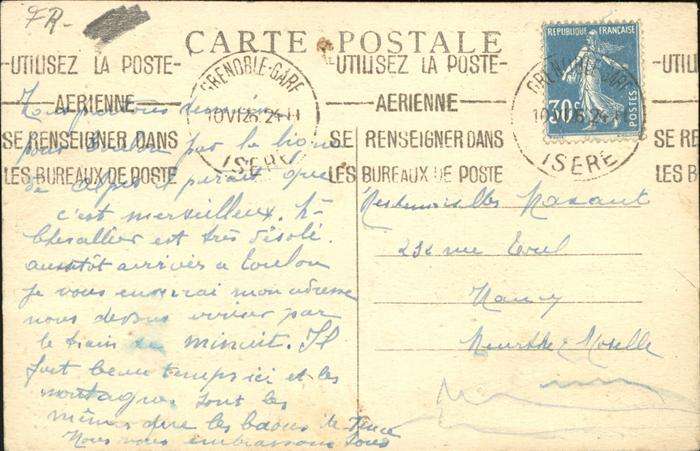 FR-
CARTE POSTALE
-UTILISEZ LA POSTE-
AERIENNE
SE RENSEIGNER DANS
LES BUREAUX DE POSTE
GRENOBLE-GARE
10 VI 26 24-H
ISERE
-UTILISEZ LA POSTE-
AERIENNE
SE RENSEIGNER DANS
LES BUREAUX DE POSTE
GRENOBLE-GARE
10 VI 26 24-H
ISERE
SE RE
LES BU
REPUBLIQUE FRANÇAISE
30c
POSTES
pour Toulon par la
que
c'est merveilleux. Mr
Chevallier est très désolé.
aussitôt arrivés à Toulon
je vous enverrai mon adresse
nous devons arriver par
le train de minuit. Il
fait beau temps ici et les
montagnes sont les
mêmes que
Nous vous embrassons tous
Mesdemoiselles
232 rue Toul
Nancy
Meurthe & Moselle